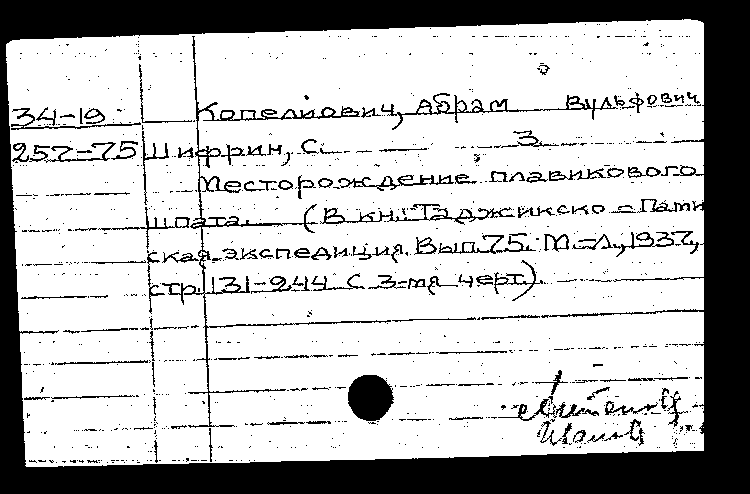 34-19 Копелиович, Абрам Вульфович
257-75 Шифрин, С. З.
Месторождение плавикового
шпата. (В кн.: Таджикско-Пами
ская экспедиция. Вып. 75. М.-Л., 1937,
стр. 131-244 с 3-мя черт.).